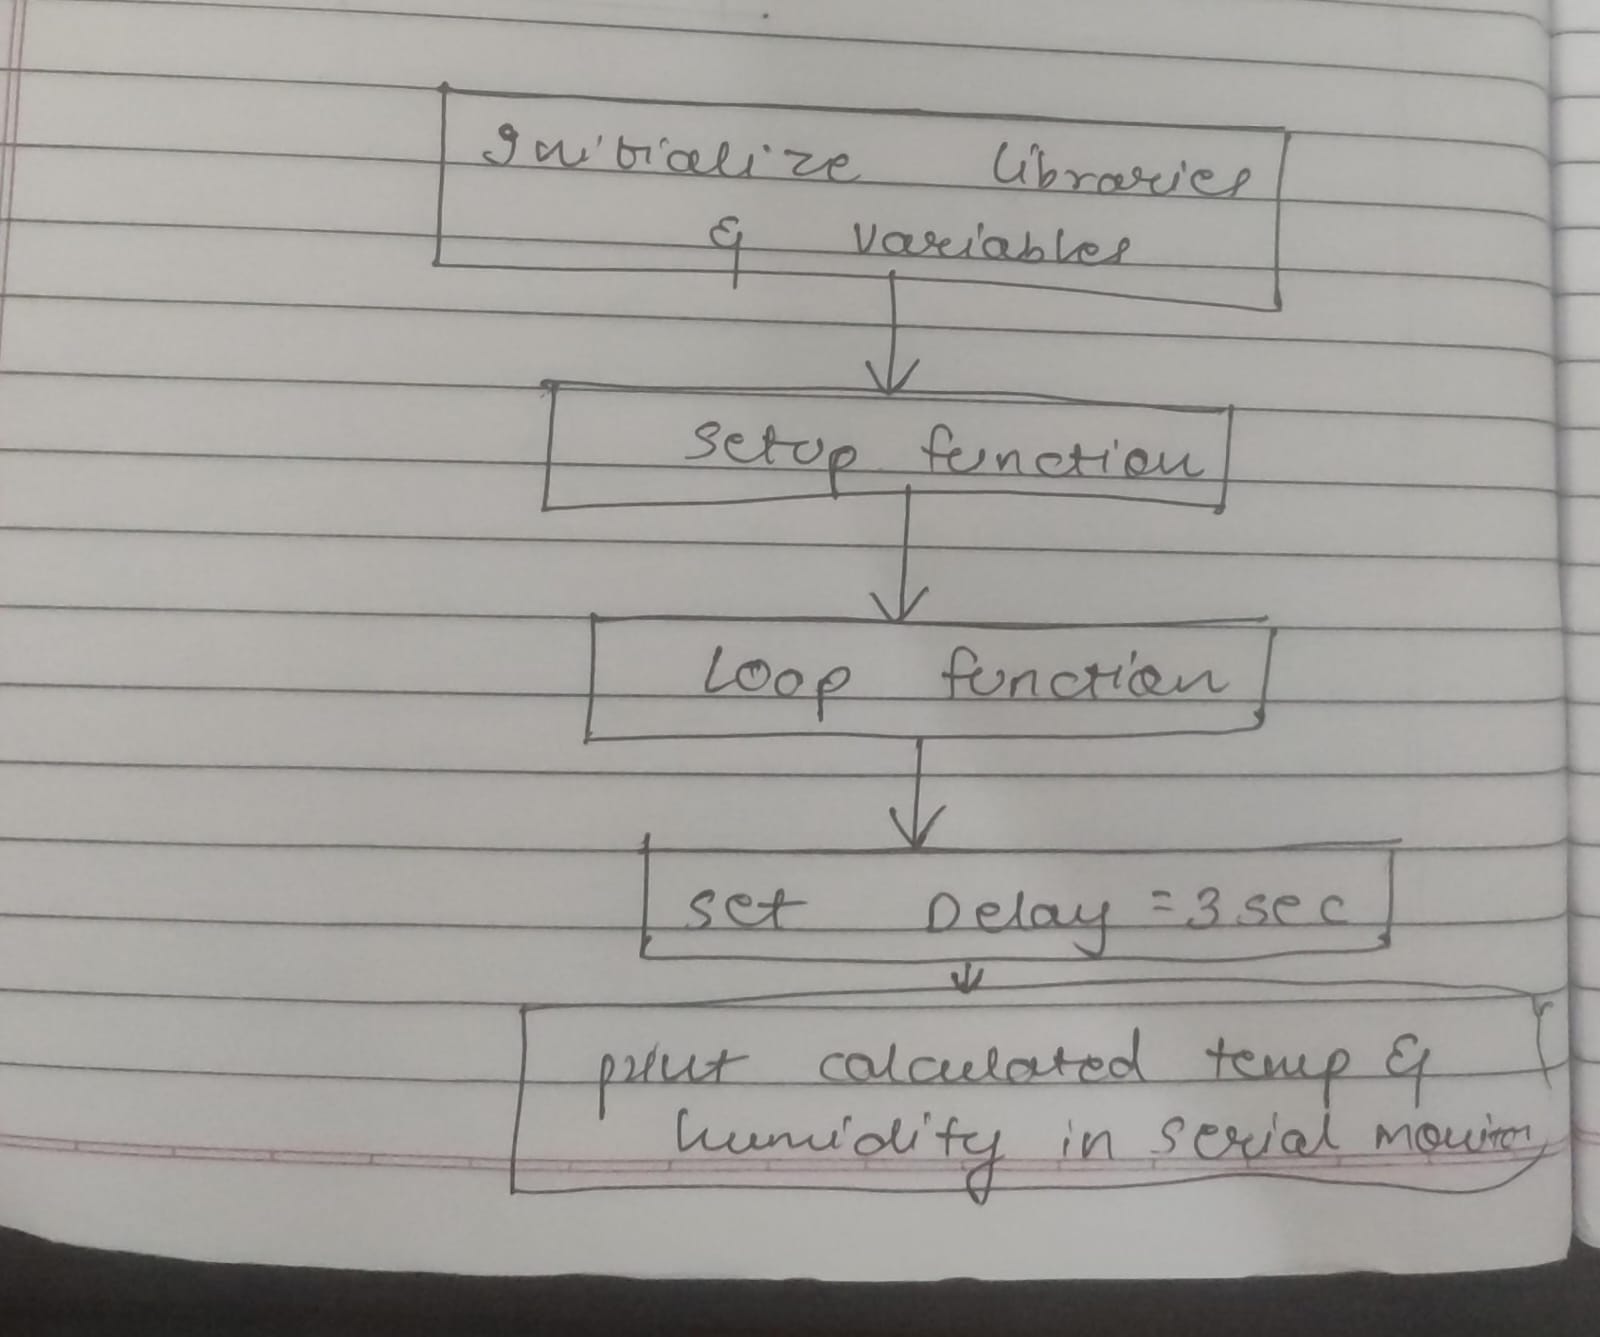 Initialize libraries
& variables
Setup function
Loop function
set Delay = 3 sec
print calculated temp &
humidity in serial monitor